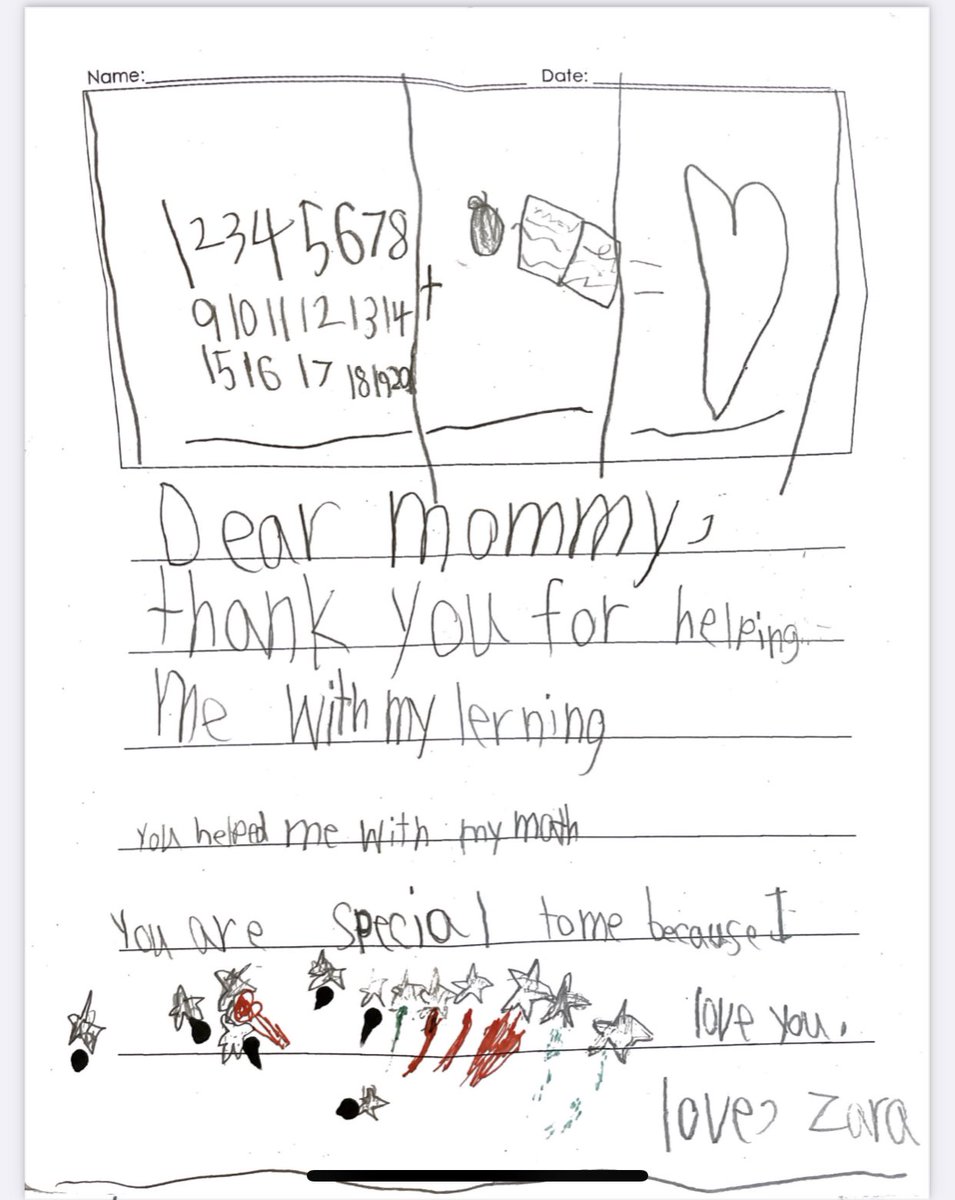 Name: Date:
12345678
9 10 11 12 13 14
15 16 17 18 19 20
+
=
Dear mommy,
thank you for helping
me with my lerning
you helped me with my math
you are special to me because I
love you.
love, zara